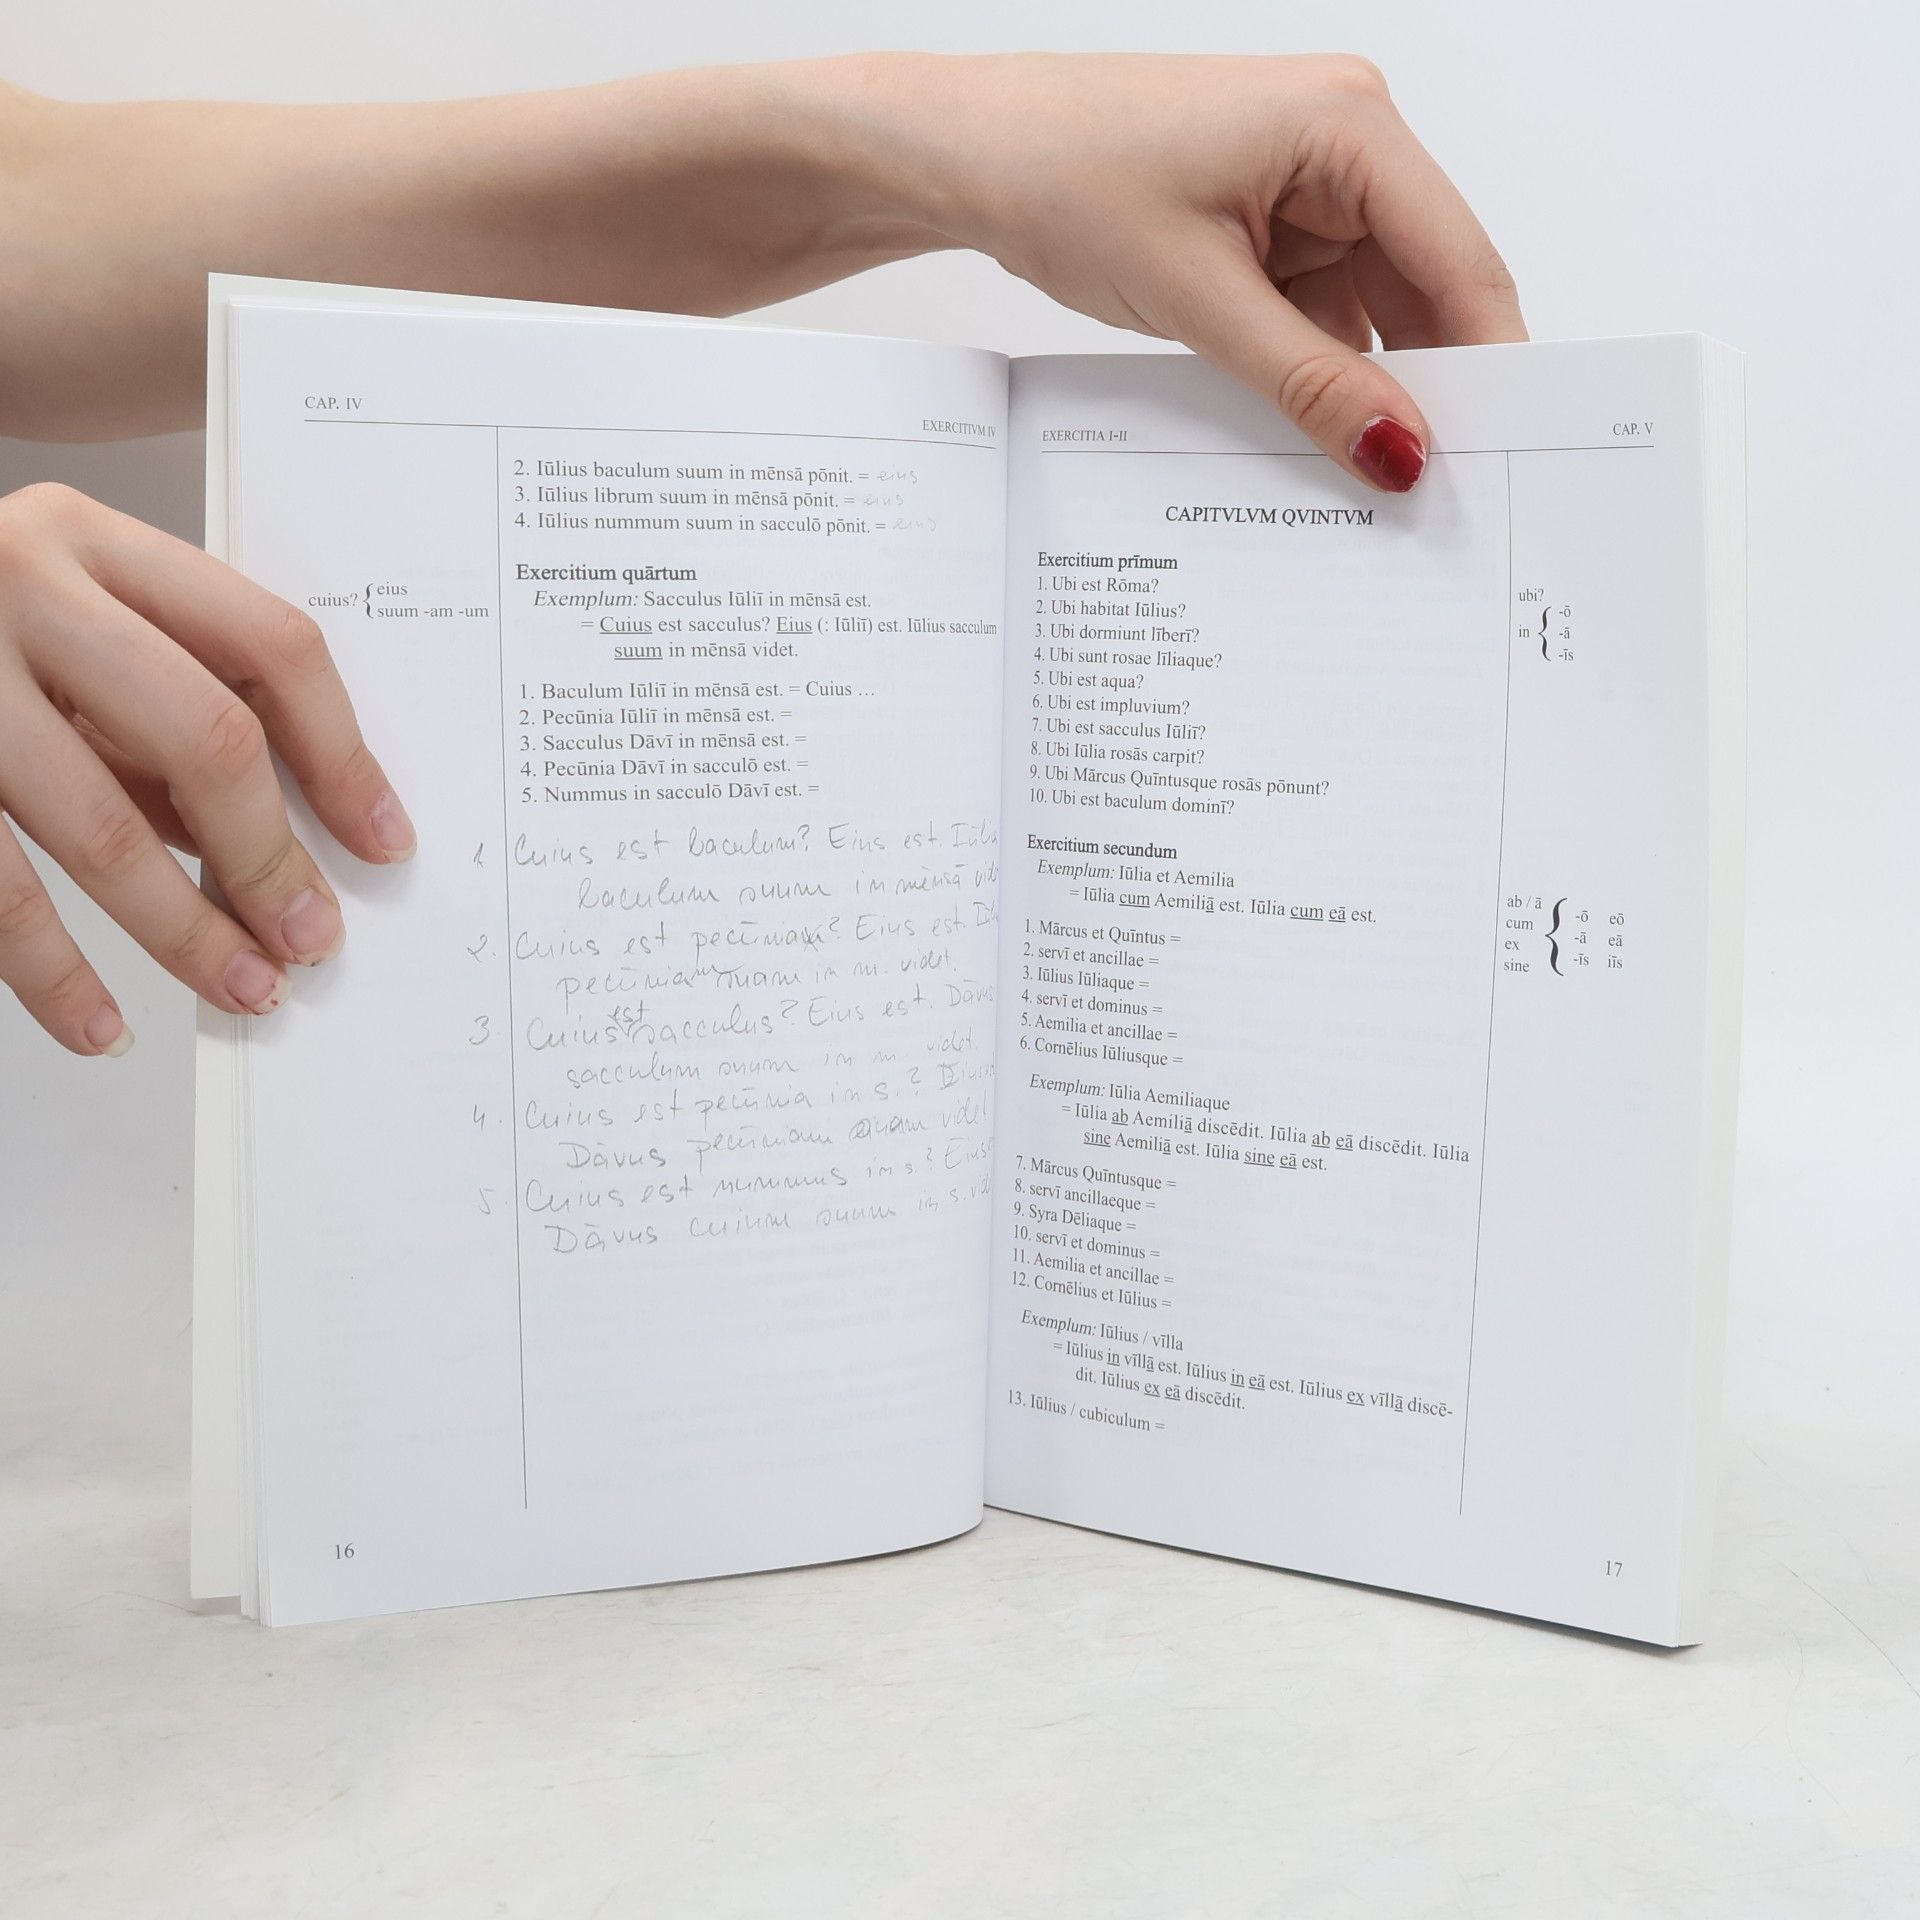 CAP. IV
EXERCITIVM IV
2. Iūlius baculum suum in mēnsā pōnit. = eius
3. Iūlius librum suum in mēnsā pōnit. = eius
4. Iūlius nummum suum in sacculō pōnit. = eius
cuius? { eius
suum -am -um
Exercitium quārtum
Exemplum: Sacculus Iūliī in mēnsā est.
= Cuius est sacculus? Eius (: Iūliī) est. Iūlius sacculum
suum in mēnsā videt.
1. Baculum Iūliī in mēnsā est. = Cuius ...
2. Pecūnia Iūliī in mēnsā est. =
3. Sacculus Dāvī in mēnsā est. =
4. Pecūnia Dāvī in sacculō est. =
5. Nummus in sacculō Dāvī est. =
1. Cuius est baculum? Eius est.
baculum suum in mēnsā
2. Cuius est pecūnia? Eius est.
pecūniam suam in m. videt.
3. Cuius est sacculus? Eius est. Dāvus
sacculum suum in m. videt.
4. Cuius est pecūnia in s.?
Dāvus pecūniam suam videt
5. Cuius est nummus in s.? Eius
Dāvus suum in s.
16
EXERCITIA I-II
CAP. V
CAPITVLVM QVINTVM
Exercitium prīmum
1. Ubi est Rōma?
2. Ubi habitat Iūlius?
3. Ubi dormiunt līberī?
4. Ubi sunt rosae līliaque?
5. Ubi est aqua?
6. Ubi est impluvium?
7. Ubi est sacculus Iūliī?
8. Ubi Iūlia rosās carpit?
9. Ubi Mārcus Quīntusque rosās pōnunt?
10. Ubi est baculum dominī?
ubi?
in { -ō
-ā
-īs
Exercitium secundum
Exemplum: Iūlia et Aemilia
= Iūlia cum Aemiliā est. Iūlia cum eā est.
1. Mārcus et Quīntus =
2. servī et ancillae =
3. Iūlius Iūliaque =
4. servī et dominus =
5. Aemilia et ancillae =
6. Cornēlius Iūliusque =
ab / ā
cum
ex
sine
{ -ō eō
-ā eā
-īs iīs
Exemplum: Iūlia Aemiliaque
= Iūlia ab Aemiliā discēdit. Iūlia ab eā discēdit. Iūlia
sine Aemiliā est. Iūlia sine eā est.
7. Mārcus Quīntusque =
8. servī ancillaeque =
9. Syra Dēliaque =
10. servī et dominus =
11. Aemilia et ancillae =
12. Cornēlius et Iūlius =
Exemplum: Iūlius / vīlla
= Iūlius in vīllā est. Iūlius in eā est. Iūlius ex vīllā discē-
dit. Iūlius ex eā discēdit.
13. Iūlius / cubiculum =
17